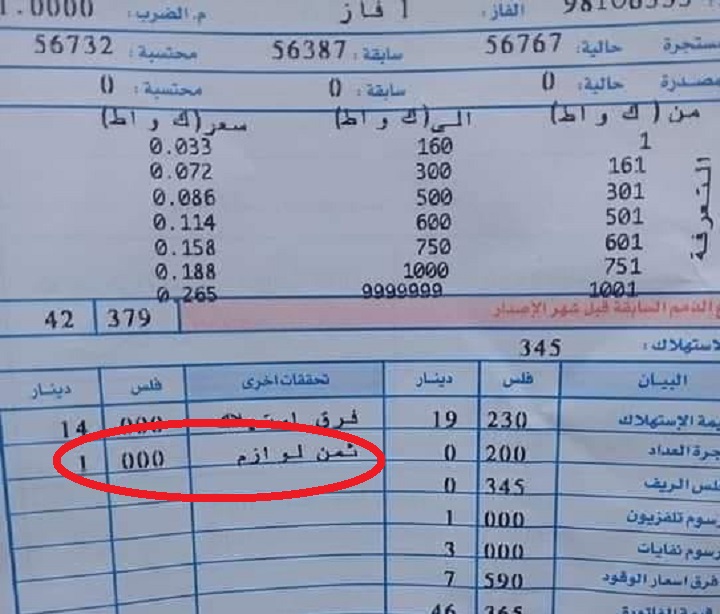 الفاز: 1 فاز م. الضرب: 1.0000
حالية: 56767 سابقة: 56387 محتسبة: 56732
حالية: 0 سابقة: 0 محتسبة: 0
من (ك و اط) الى (ك و اط) سعر (ك و اط)
التعرفة
1 160 0.033
161 300 0.072
301 500 0.086
501 600 0.114
601 750 0.158
751 1000 0.188
1001 9999999 0.265
الذمم السابقة قبل شهر الإصدار 379 42
345
البيان فلس دينار تحققات اخرى فلس دينار
230 19 فرق 000 14
200 0 ثمن لوازم 000 1
فلس الريف 345 0
رسوم تلفزيون 000 1
رسوم نفايات 000 3
فرق اسعار الوقود 590 7
365 46